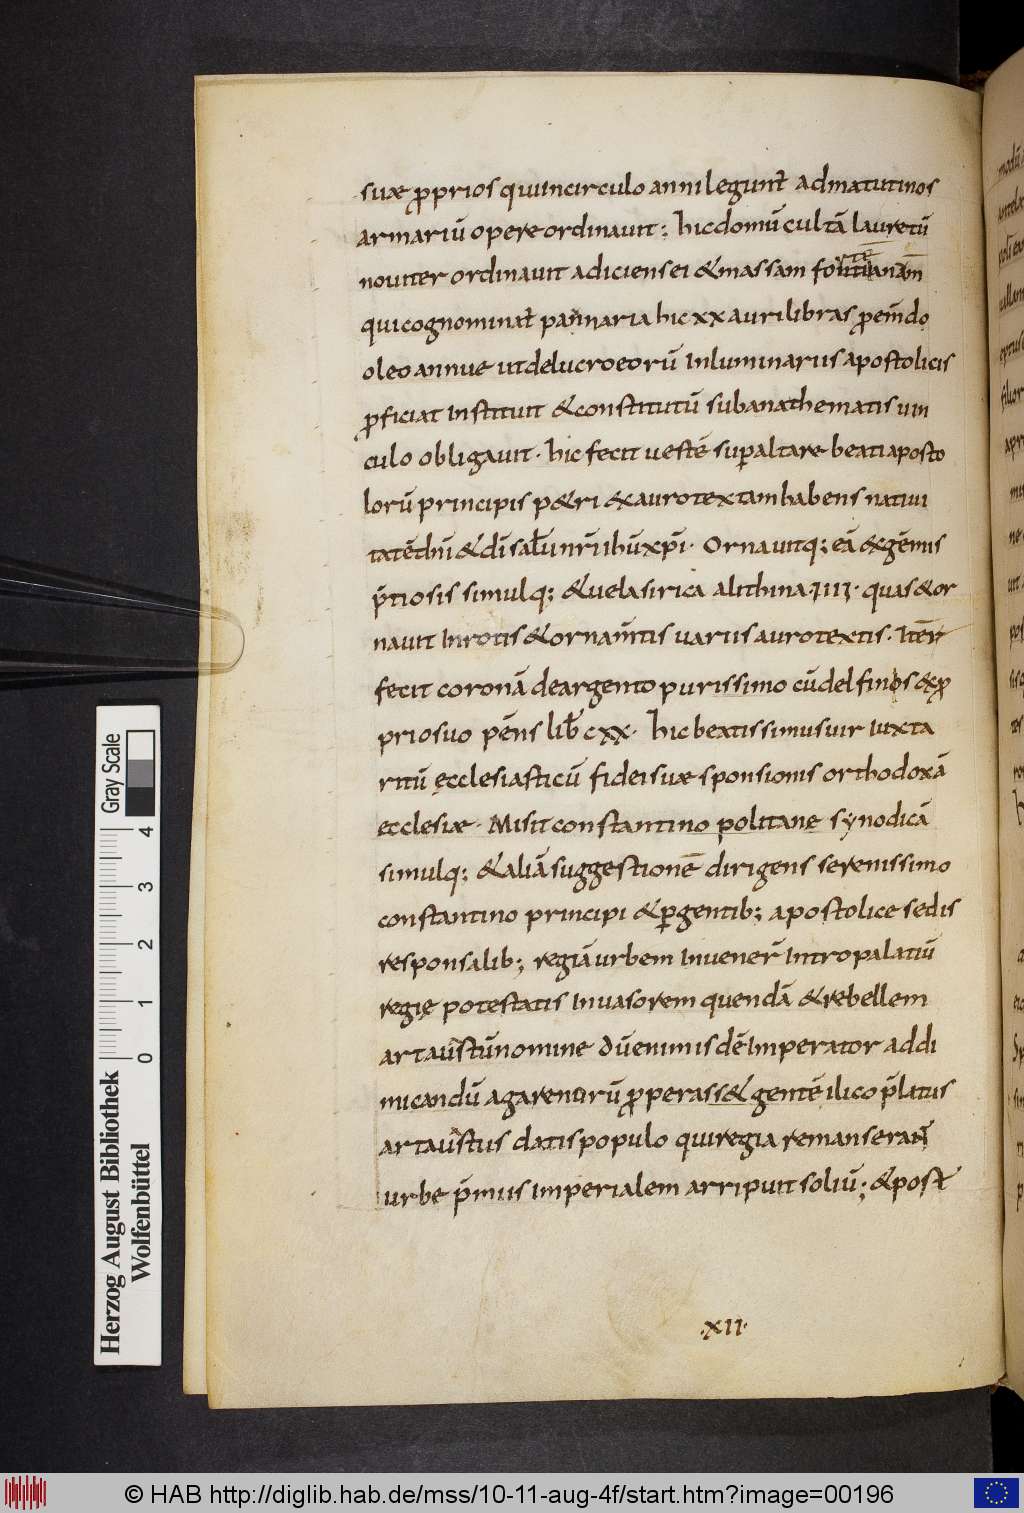 suae ꝓprios qui incirculo anni legunt̄ admatutinos
armariū opere ordinauit; hic domū cultā lauretū
nouiter ordinauit adiciens ei & massam
qui cognominat̄ pannaria hic xx auri libras
oleo annue ut de lucro eorū inluminariis apostolicis
ꝓficiat instituit & constitutū sub anathematis uin
culo obligauit. hic fecit uestē suꝑ altare beati aposto
lorū principis p&ri ex auro textam habens natiui
tatē dn̄i & dī saluī nr̄i ihū xp̄i. Ornauitq; eā & gēmis
p̄tiosis simulq; & uela sirica alithina quas & or
nauit in rotis & ornam̄tis uariis auro textis. Itē
fecit coronā de argento purissimo cū delfinos & ꝓ
prio suo pēns lib̄ cxx. hic beatissimus uir iuxta
ritū ęcclesiasticū fidei suae sponsionis orthodoxā
ecclesiae. Misit constantino politane synodicā
simulq; & aliā suggestionē dirigens serenissimo
constantino principi & ꝑgentib; apostolice sedis
responsalib; regiā urbem inuener̄ intro palatiū
regię potestatis inuasorem quendā & rebellem
artaustū nomine dū enim isdē imperator addi
micandū agarenorū ꝓperass& gentē ilico p̄latus
artaustus datis populo qui regia remanseran̄
urbe p̄miis imperialem arripuit soliū; & post
.XII.
Gray Scale
4
3
2
1
0
Herzog August Bibliothek
Wolfenbüttel
© HAB http://diglib.hab.de/mss/10-11-aug-4f/start.htm?image=00196